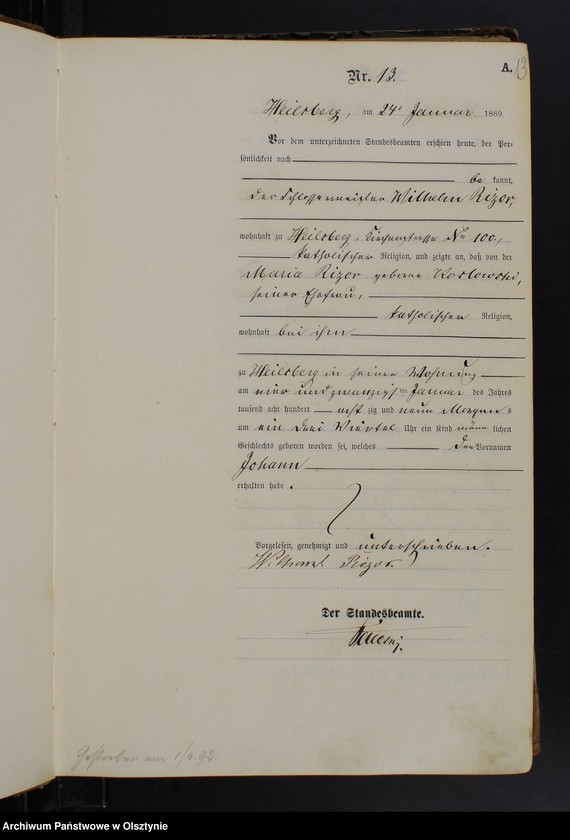 A. 13
Nr. 13.
Heilsberg, am 24ᵗ Januar 1889
Vor dem unterzeichneten Standesbeamten erschien heute, der Per-
sönlichkeit nach
be kannt,
der Schlossermeister Wilhelm Rizor,
wohnhaft zu Heilsberg, Kirchenstrasse No 100,
katholischer Religion, und zeigte an, daß von der
Maria Rizor geborne Koslowski,
seiner Ehefrau,
katholischen Religion,
wohnhaft bei ihm
zu Heilsberg in seiner Wohnung
am vier und zwanzigsten Januar des Jahres
tausend acht hundert acht zig und neun Morgens
um ein drei Viertel Uhr ein Kind männ lichen
Geschlechts geboren worden sei, welches den Vornamen
Johann
erhalten habe.
Vorgelesen, genehmigt und unterschrieben.
Wilhelm Rizor.
Der Standesbeamte.
Gestorben am 1/4.92.
Archiwum Państwowe w Olsztynie